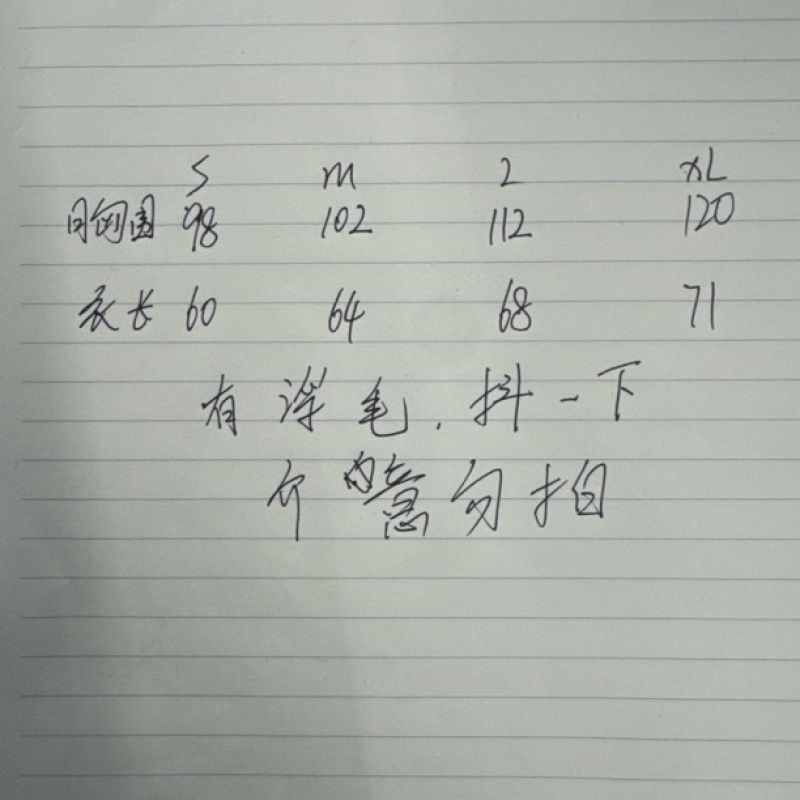 S M L XL
胸围 98 102 112 120
衣长 60 64 68 71
有浮毛，抖一下
介意勿拍